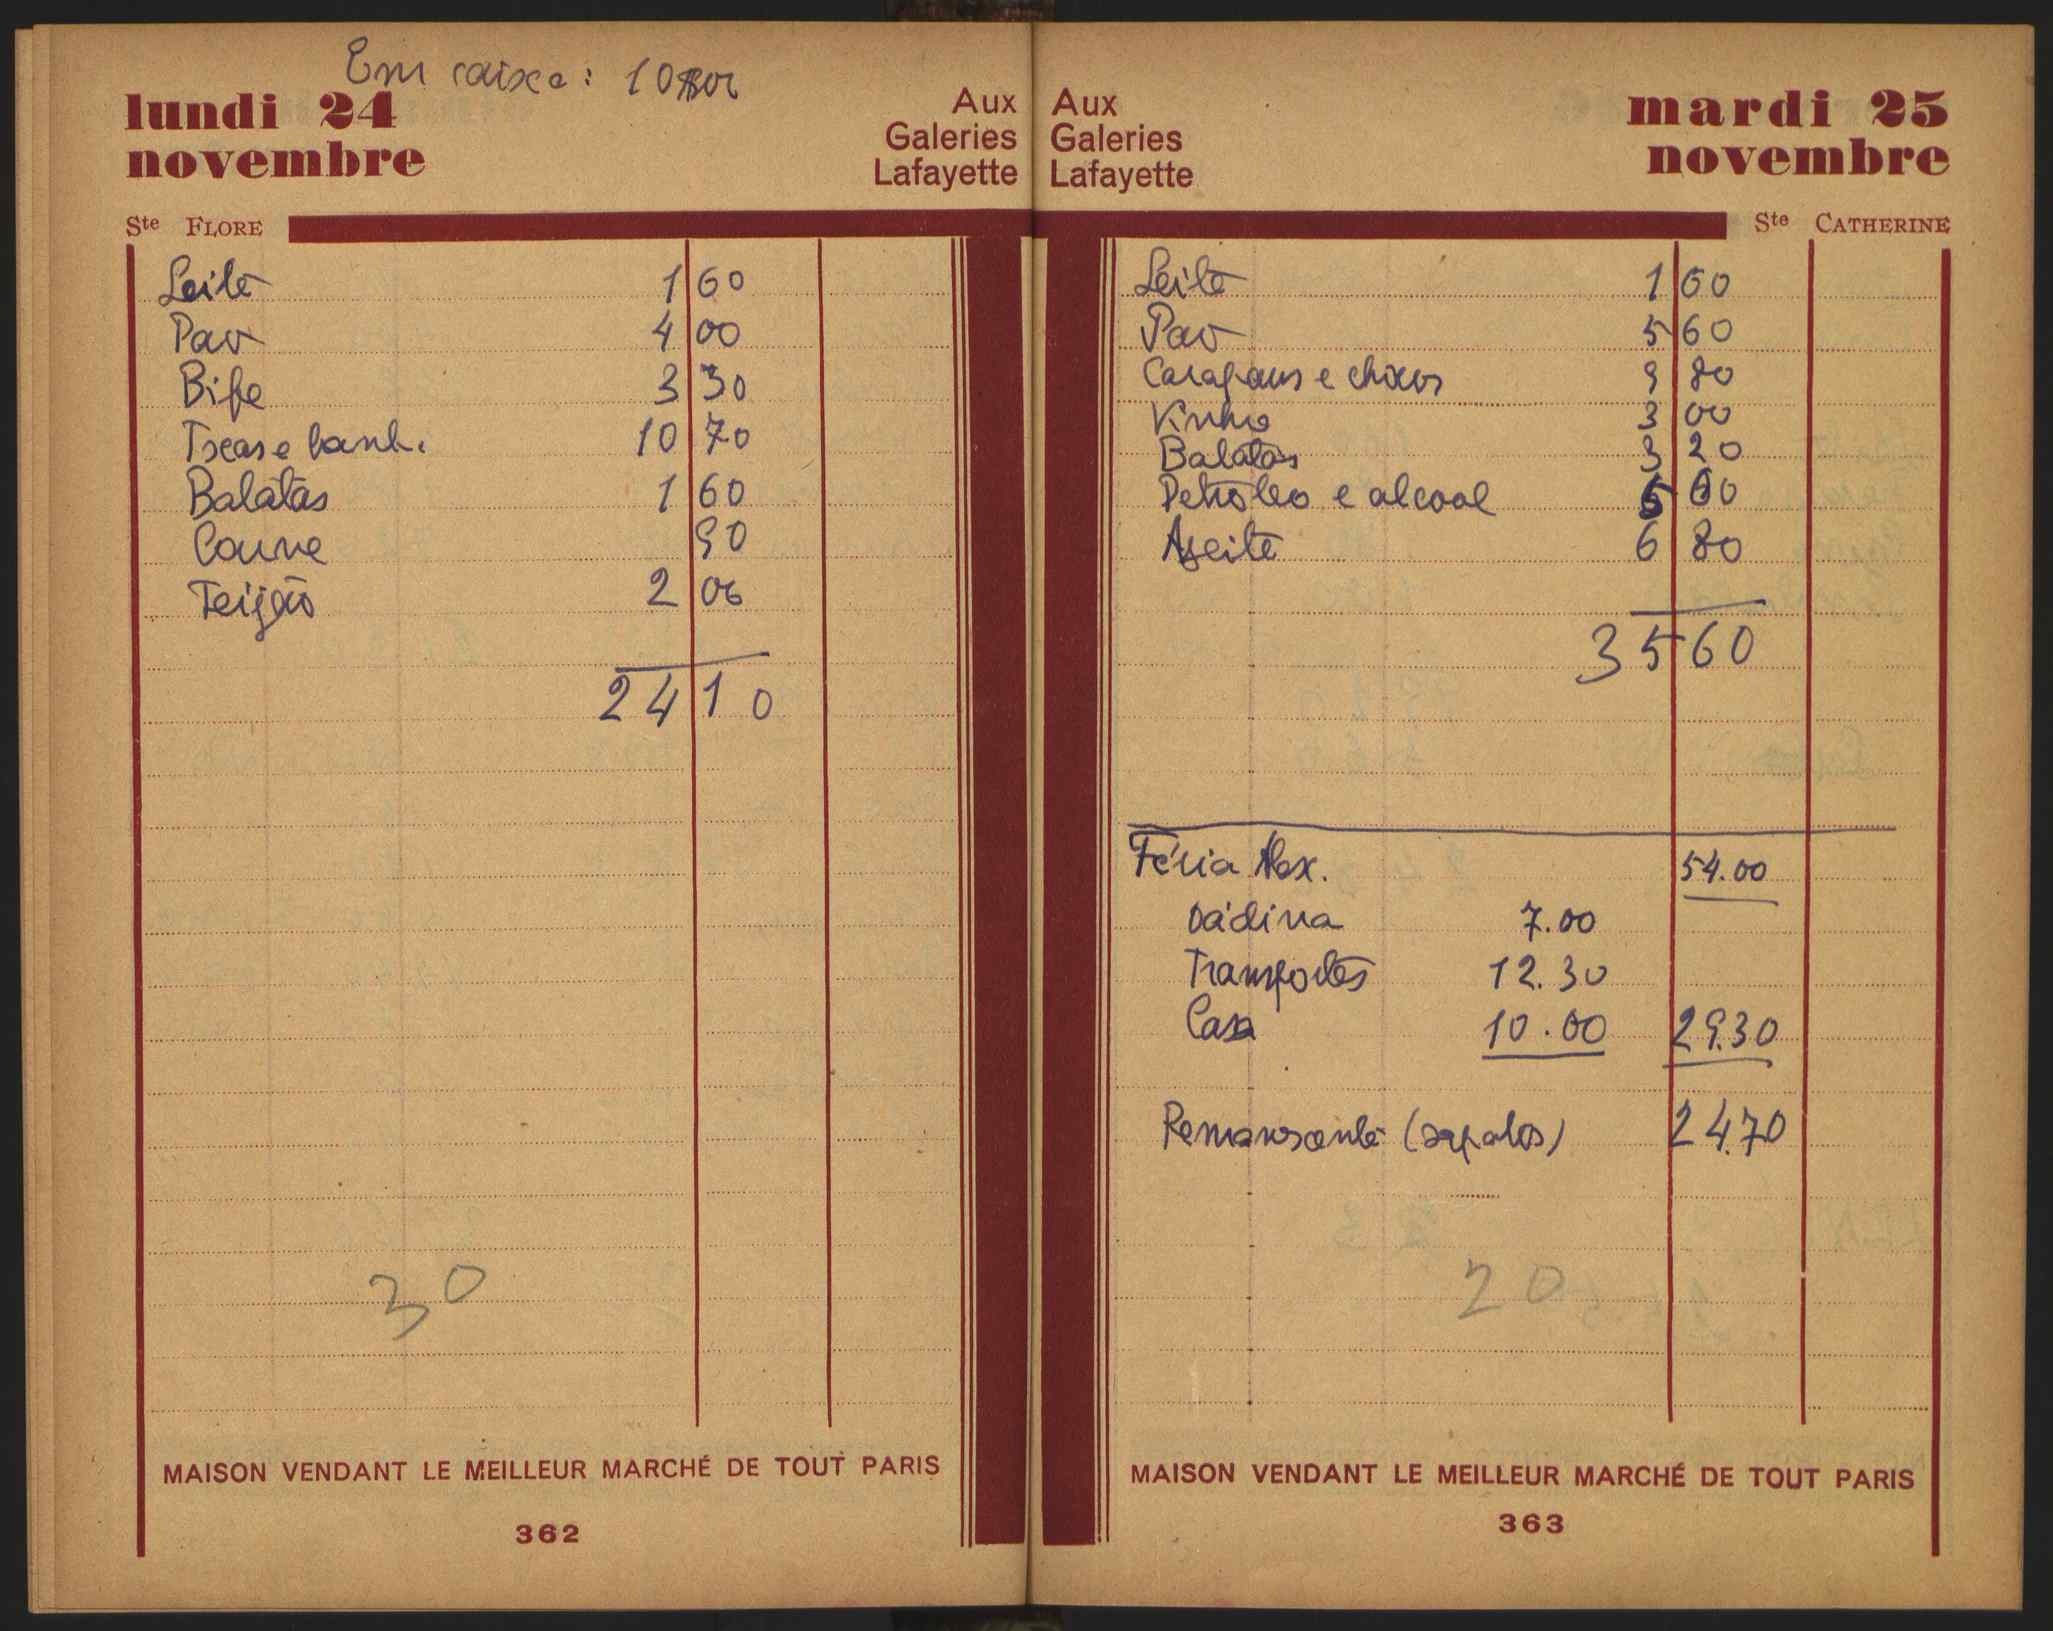 Em caixa: 10$00
lundi 24
novembre
Aux
Galeries
Lafayette
Ste FLORE
Leite 1 60
Pão 4 00
Bife 3 30
Iscas e banh. 10 70
Batatas 1 60
Couve 90
Feijão 2 00
24 10
30
MAISON VENDANT LE MEILLEUR MARCHÉ DE TOUT PARIS
362
Aux
Galeries
Lafayette
mardi 25
novembre
Ste CATHERINE
Leite 1 60
Pão 5 60
Carapaus e chixos 9 80
Vinho 3 00
Batatas 3 20
Petroleo e alcool 5 60
Azeite 6 80
35 60
Féria Alex. 54.00
Dádiva 7.00
Transportes 12.30
Casa 10.00 29.30
Remanscente (sapatos) 24.70
20
MAISON VENDANT LE MEILLEUR MARCHÉ DE TOUT PARIS
363